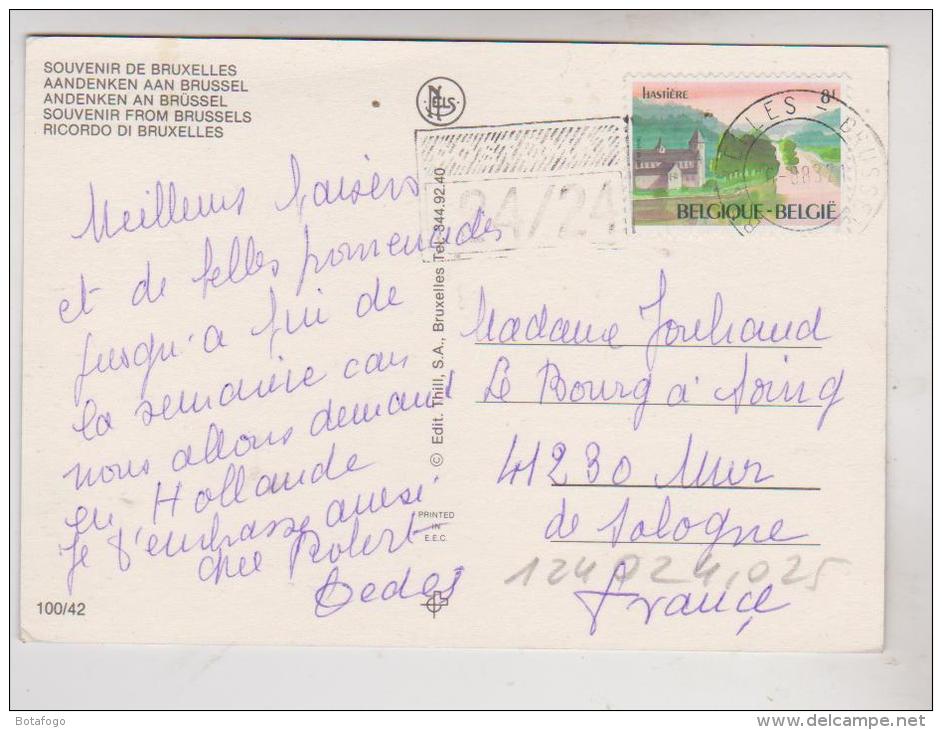 SOUVENIR DE BRUXELLES
AANDENKEN AAN BRUSSEL
ANDENKEN AN BRÜSSEL
SOUVENIR FROM BRUSSELS
RICORDO DI BRUXELLES
NELS
HASTIÈRE 8F
BELGIQUE-BELGIË
24/24
Meilleurs baisers
et de belles promenades
jusqu'a fin de
la semaine car
nous allons demain
en Hollande
Je t'embrasse aussi
cher Robert
© Edit. Thill, S.A., Bruxelles Tel. 344.92.40
PRINTED
IN
E.E.C.
100/42
Madame
Le Bourg à Soing
41230 Mur
de Sologne
France
124024,025
Botafogo
www.delcampe.net